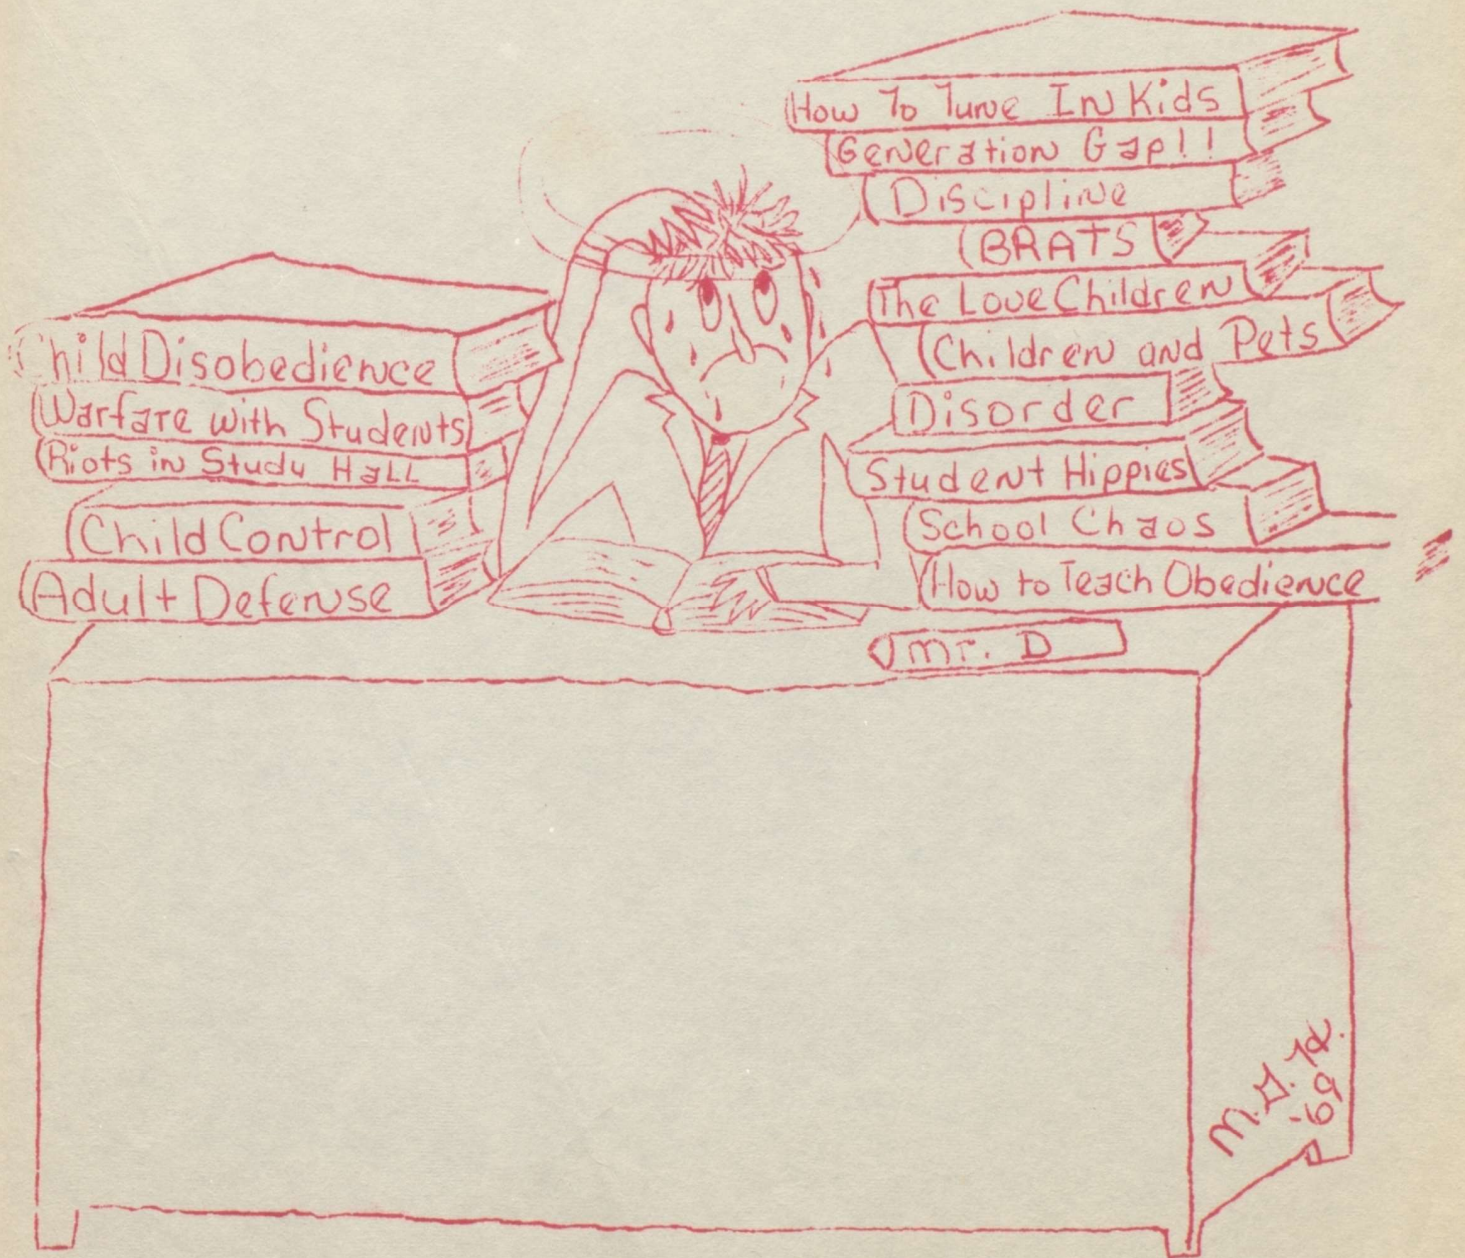 Child Disobedience
Warfare with Students
Riots in Study Hall
Child Control
Adult Defense
How To Tune In Kids
Generation Gap!!
Discipline
BRATS
The Love Children
Children and Pets
Disorder
Student Hippies
School Chaos
How to Teach Obedience
Mr. D
'69